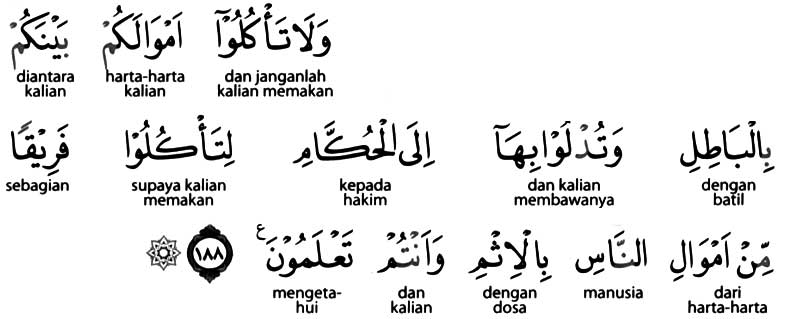 وَلَا تَأْكُلُوْٓا اَمْوَالَكُمْ بَيْنَكُمْ
dan janganlah kalian memakan harta-harta kalian diantara kalian
بِالْبَاطِلِ وَتُدْلُوْا بِهَآ اِلَى الْحُكَّامِ لِتَأْكُلُوْا فَرِيْقًا
dengan batil dan kalian membawanya kepada hakim supaya kalian memakan sebagian
مِّنْ اَمْوَالِ النَّاسِ بِالْاِثْمِ وَاَنْتُمْ تَعْلَمُوْنَ ࣖ ١٨٨
dari harta-harta manusia dengan dosa dan kalian mengeta-hui